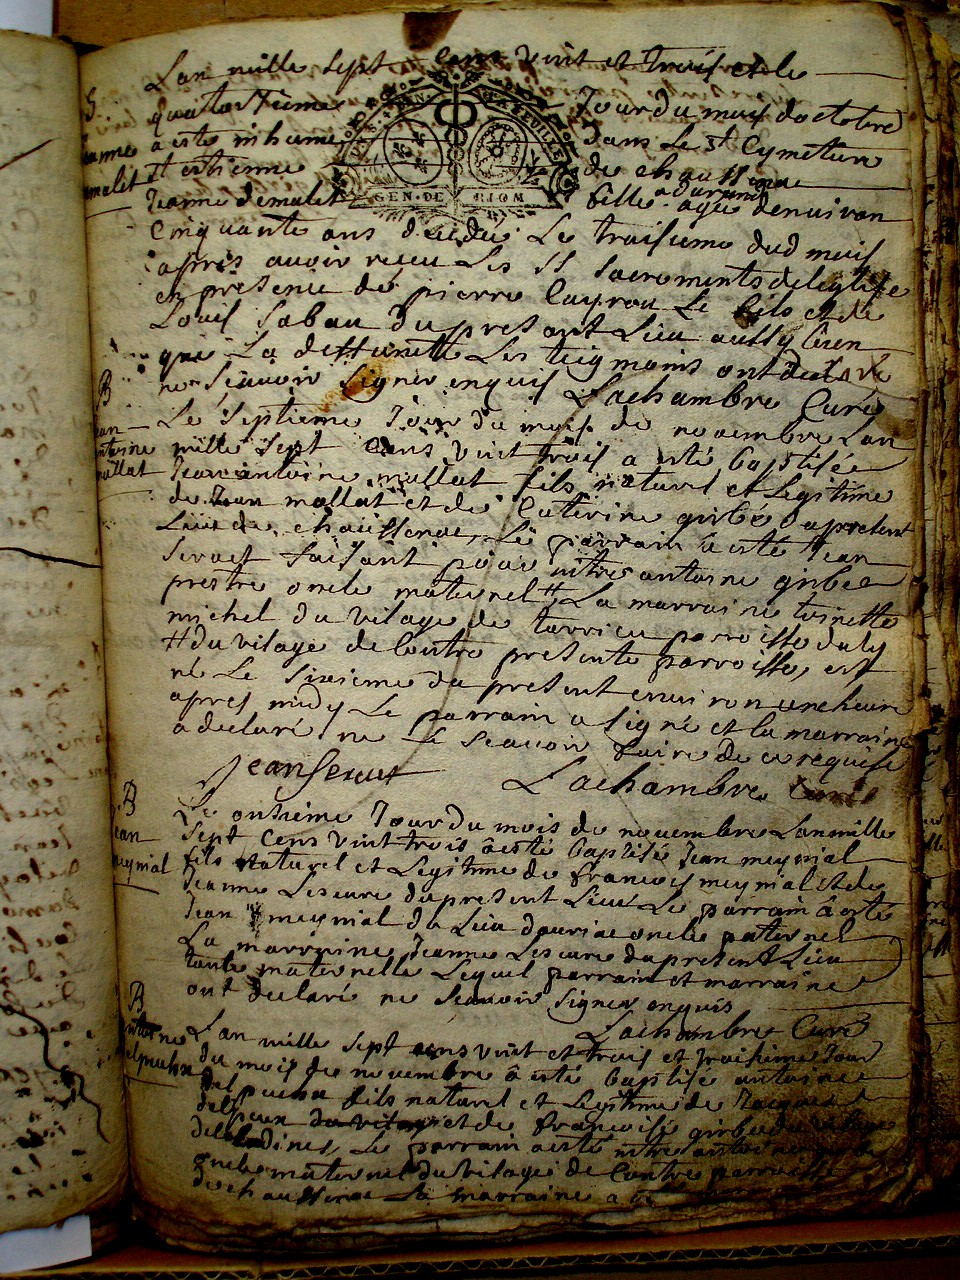 Lan mille sept cens vint et trois et le
quatorsieme Jour du mois doctobre
a esté inhumée dans Le st Cymetiere
st estienne de chaussenac
GEN·DE RIOM
Jeanne demalet fille agée denviron
Cinquante ans decedée Le traisieme dud mois
apres avoir reçeu Les SS sacrements de leglise
en presence de pierre Cayrou Le fils et de
Louis saban du present Lieu aussy bien
que La deffunette Les teigmoins ont declaré
ne sçavoir signer enquis Lachambre Curé
B
Jean
antoine
mallat
Le septieme Jour du mois de novembre Lan
mille sept cens vint trois a esté baptisée
Jean antoine mallat fils naturel et Legitime
de Jean mallat et de Caterine girbée du present
Lieu de chaussenac, Le parrain a esté Jean
seraet faisant pour mitre antoine girbée
prestre oncle maternel # La marraine toinette
michel du vilage de tarrieu parroisse dally
# du vilage de Contre presente parroisse, est
né Le sixieme du present environ une heure
apres midy Le parrain a signé et la marraine
a declaré ne Le sçavoir faire de ce requise
Jean Seraet Lachambre Curé
B
Jean
meynial
Le onsieme Jour du mois de novembre Lan mille
sept cens vint trois a esté baptisé Jean meynial
fils naturel et Legitime de francois meynial et de
Jeanne Lescure du present Lieu Le parrain a esté
Jean meynial du Lieu dauriac oncle paternel
La marraine Jeanne Lescure du present Lieu
tante maternelle Lequel parrain et marraine
ont declaré ne sçavoir signer enquis
Lachambre Curé
B
antoine
delpuhx
Lan mille sept cens vint et trois et traisieme Jour
du mois de novembre a esté baptisé antoine
fils naturel et Legitime de Jacques
et de francoise girbée du vilage
Le parrain a esté mitre antoine
oncle maternel du vilage de Contre parroisse
de chaussenac La marraine a